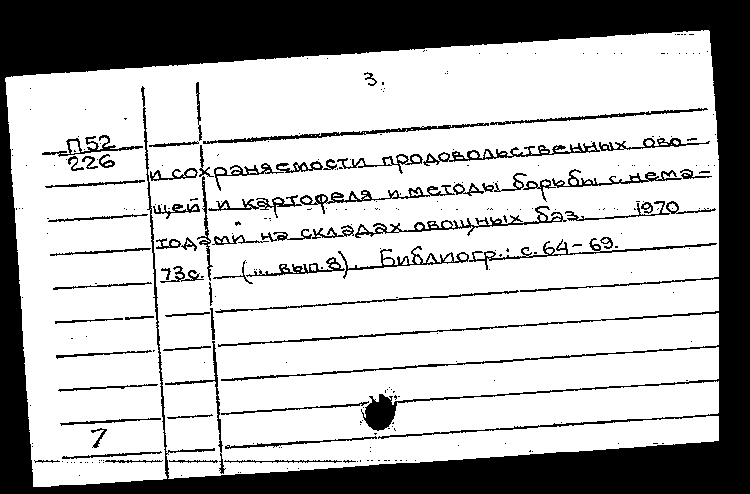 3.
П52
226
и сохраняемости продовольственных ово=
щей и картофеля и методы борьбы с нема=
тодами" на складах овощных баз. 1970
73с. (... вып. 8). Библиогр.: с. 64-69.
7